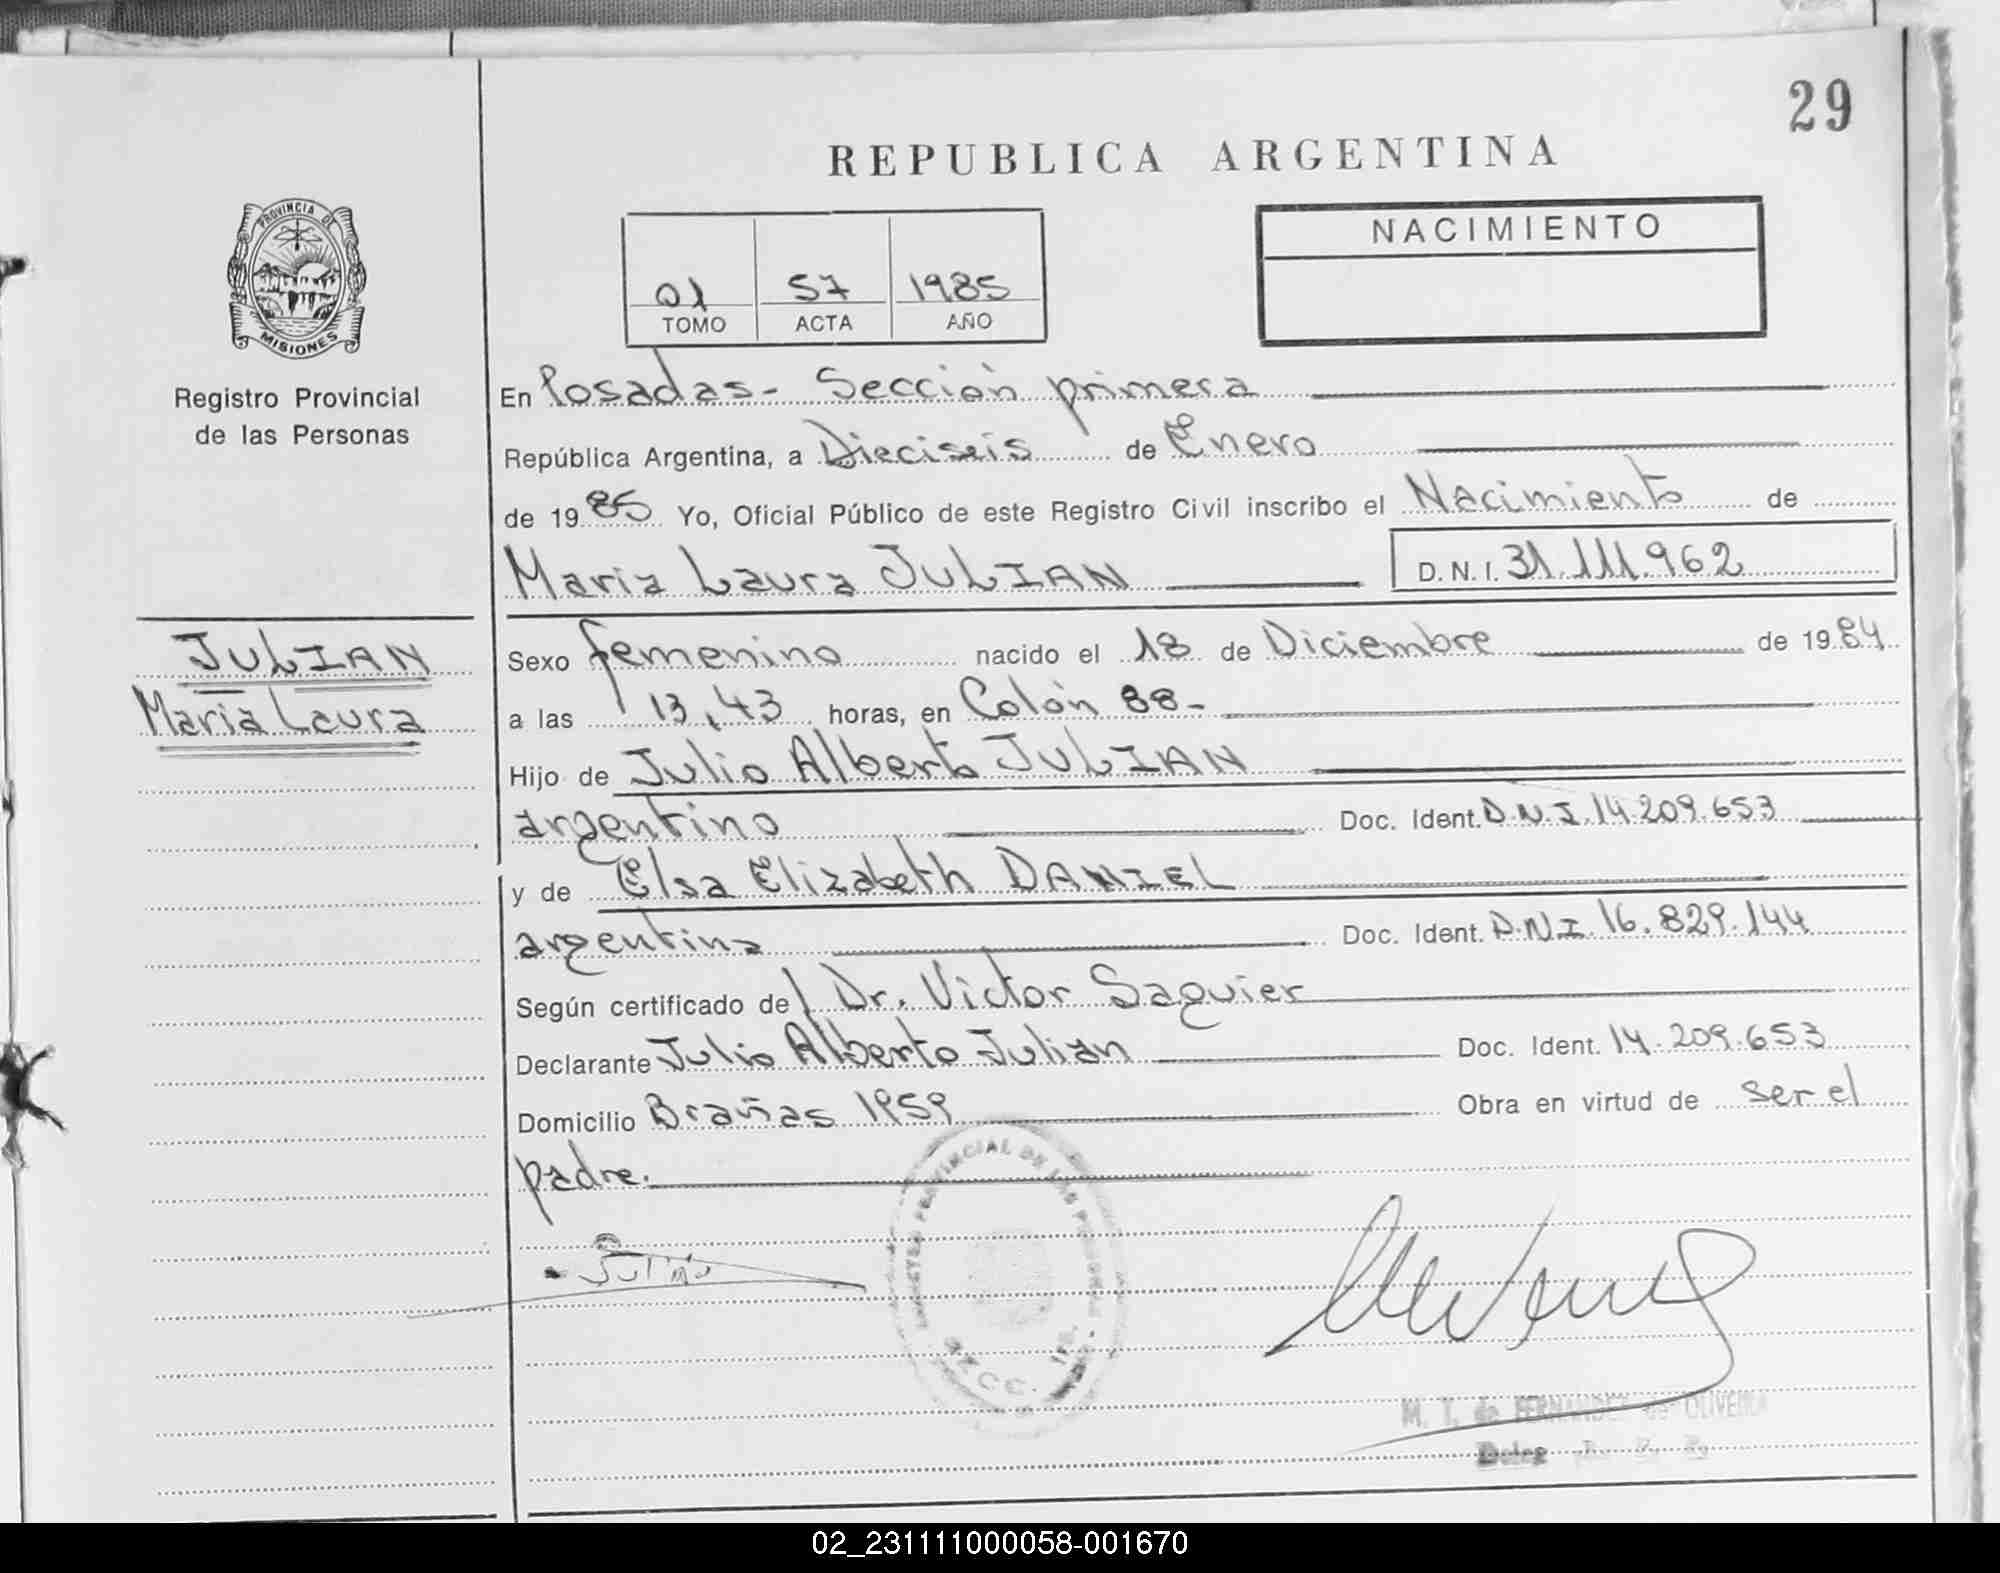 29
REPUBLICA ARGENTINA
PROVINCIA DE
MISIONES
Registro Provincial
de las Personas
01 57 1985
TOMO ACTA AÑO
NACIMIENTO
En Posadas - Sección primera
República Argentina, a Dieciseis de Enero
de 1985 Yo, Oficial Público de este Registro Civil inscribo el Nacimiento de
Maria Laura JULIAN D.N.I. 31.111.962
JULIAN
Maria Laura
Sexo femenino nacido el 18 de Diciembre de 1984
a las 13,43 horas, en Colón 88-
Hijo de Julio Alberto JULIAN
argentino Doc. Ident. D.N.I. 14.209.653
y de Elsa Elizabeth DANIEL
argentina Doc. Ident. D.N.I. 16.829.144
Según certificado de Dr. Victor Saguier
Declarante Julio Alberto Julian Doc. Ident. 14.209.653
Domicilio Brañas 1959 Obra en virtud de ser el
padre.
PROVINCIAL DE LAS PERSONAS
M. T. de FERNANDEZ de OLIVEIRA
02_231111000058-001670